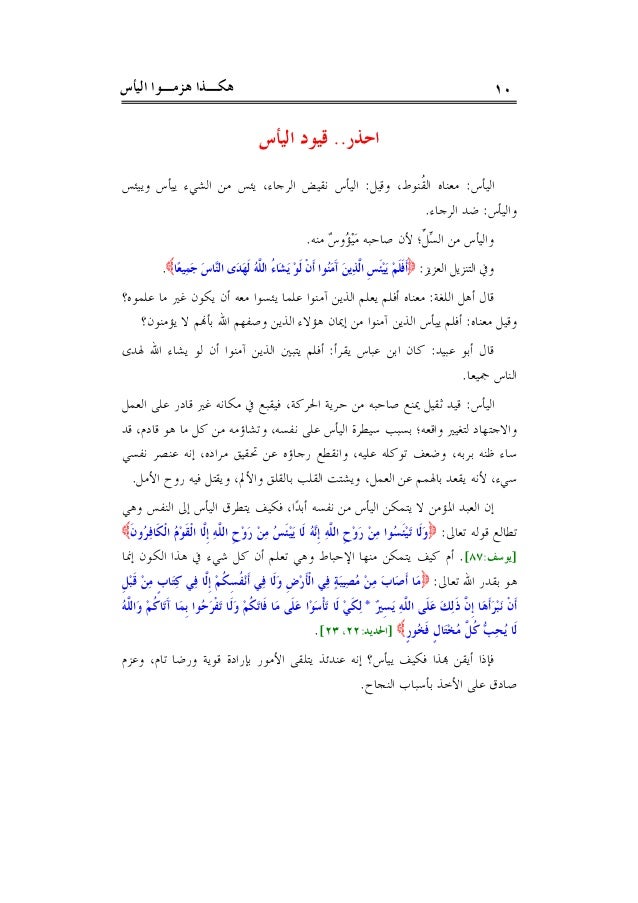 هكـــذا هزمـــوا اليأس ١٠
احذر.. قيود اليأس
اليأس: معناه القُنوط، وقيل: اليأس نقيض الرجاء، يئس من الشيء ييأس وييئس
واليأس: ضد الرجاء.
واليأس من السِّلِّ؛ لأن صاحبه مَيْؤُوسٌ منه.
وفي التنزيل العزيز: ﴿أَفَلَمْ يَيْئَسِ الَّذِينَ آمَنُوا أَنْ لَوْ يَشَاءُ اللَّهُ لَهَدَى النَّاسَ جَمِيعًا﴾.
قال أهل اللغة: معناه أفلم يعلم الذين آمنوا علما يئسوا معه أن يكون غير ما علموه؟
وقيل معناه: أفلم ييأس الذين آمنوا من إيمان هؤلاء الذين وصفهم الله بأنهم لا يؤمنون؟
قال أبو عبيد: كان ابن عباس يقرأ: أفلم يتبين الذين آمنوا أن لو يشاء الله لهدى
الناس جميعا.
اليأس: قيد ثقيل يمنع صاحبه من حرية الحركة، فيقبع في مكانه غير قادر على العمل
والاجتهاد لتغيير واقعه؛ بسبب سيطرة اليأس على نفسه، وتشاؤمه من كل ما هو قادم، قد
ساء ظنه بربه، وضعف توكله عليه، وانقطع رجاؤه عن تحقيق مراده، إنه عنصر نفسي
سيء، لأنه يقعد بالهمم عن العمل، ويشتت القلب بالقلق والألم، ويقتل فيه روح الأمل.
إن العبد المؤمن لا يتمكن اليأس من نفسه أبدًا، فكيف يتطرق اليأس إلى النفس وهي
تطالع قوله تعالى: ﴿وَلَا تَيْئَسُوا مِنْ رَوْحِ اللَّهِ إِنَّهُ لَا يَيْئَسُ مِنْ رَوْحِ اللَّهِ إِلَّا الْقَوْمُ الْكَافِرُونَ﴾
[يوسف:٨٧]. أم كيف يتمكن منها الإحباط وهي تعلم أن كل شيء في هذا الكون إنما
هو بقدر الله تعالى: ﴿مَا أَصَابَ مِنْ مُصِيبَةٍ فِي الْأَرْضِ وَلَا فِي أَنْفُسِكُمْ إِلَّا فِي كِتَابٍ مِنْ قَبْلِ
أَنْ نَبْرَأَهَا إِنَّ ذَلِكَ عَلَى اللَّهِ يَسِيرٌ * لِكَيْ لَا تَأْسَوْا عَلَى مَا فَاتَكُمْ وَلَا تَفْرَحُوا بِمَا آتَاكُمْ وَاللَّهُ
لَا يُحِبُّ كُلَّ مُخْتَالٍ فَخُورٍ﴾ [الحديد:٢٢، ٢٣].
فإذا أيقن بهذا فكيف ييأس؟ إنه عندئذ يتلقى الأمور بإرادة قوية ورضا تام، وعزم
صادق على الأخذ بأسباب النجاح.